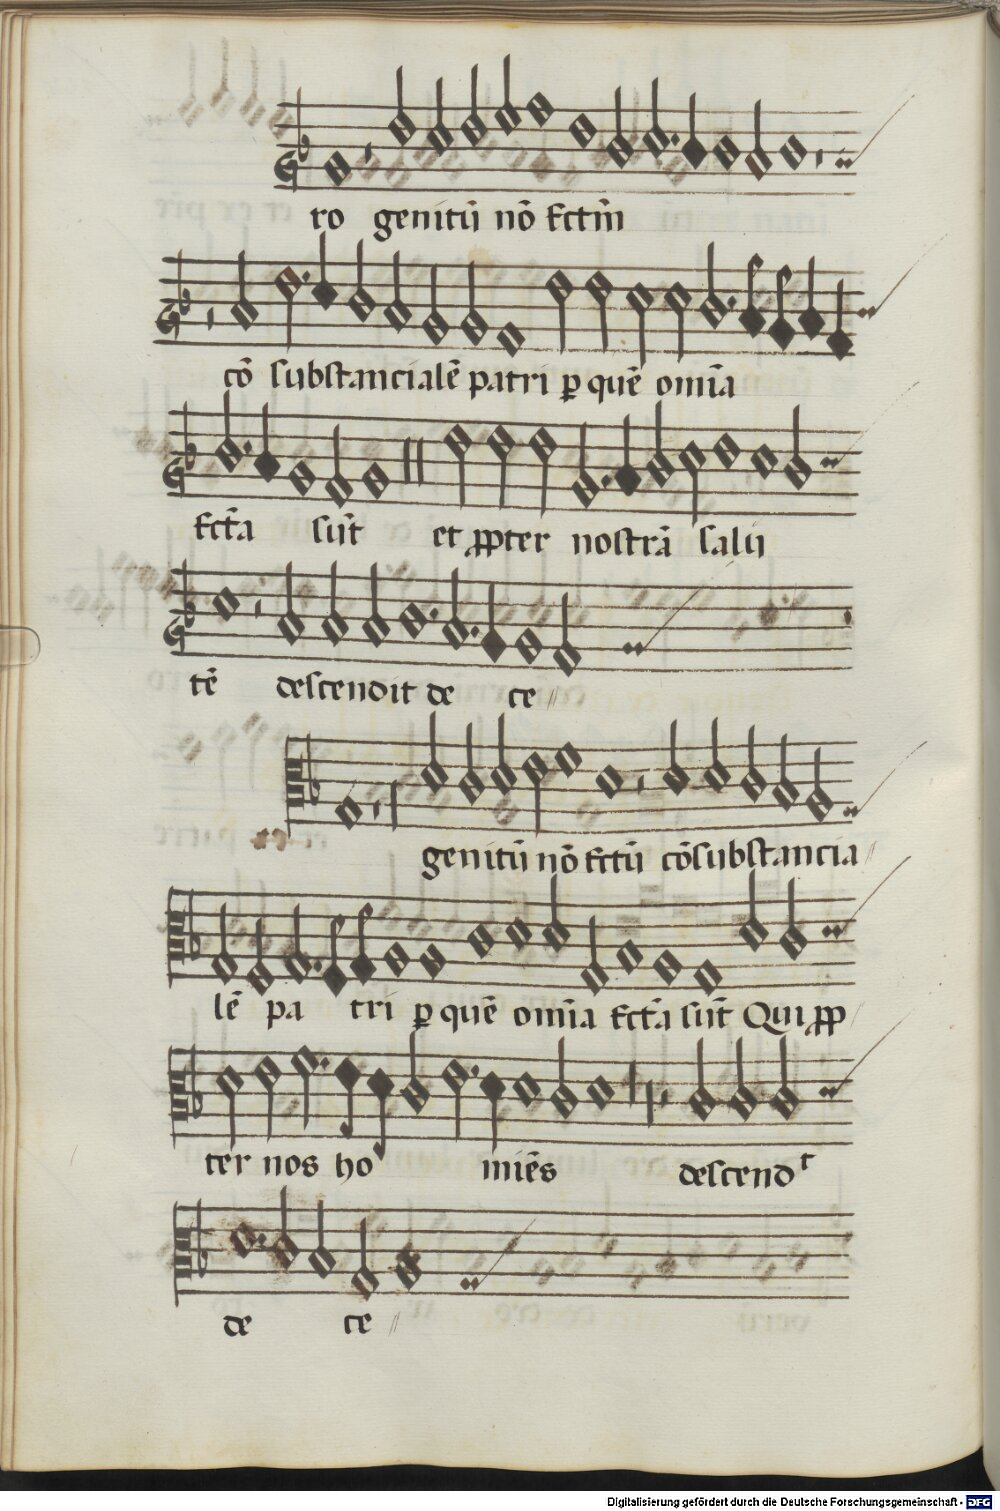 ro genitū nō fctm̄
cō substancialē patri ꝑ quē om̄ia
fct̄a sūt et ꝓpter nostrā salu
tē descendit de ce
genitū nō fctū cōsubstancia
lē pa tri ꝑ quē om̄ia fct̄a sūt Qui ꝓp
ter nos ho miēs descendᵗ
de ce
Digitalisierung gefördert durch die Deutsche Forschungsgemeinschaft - DFG